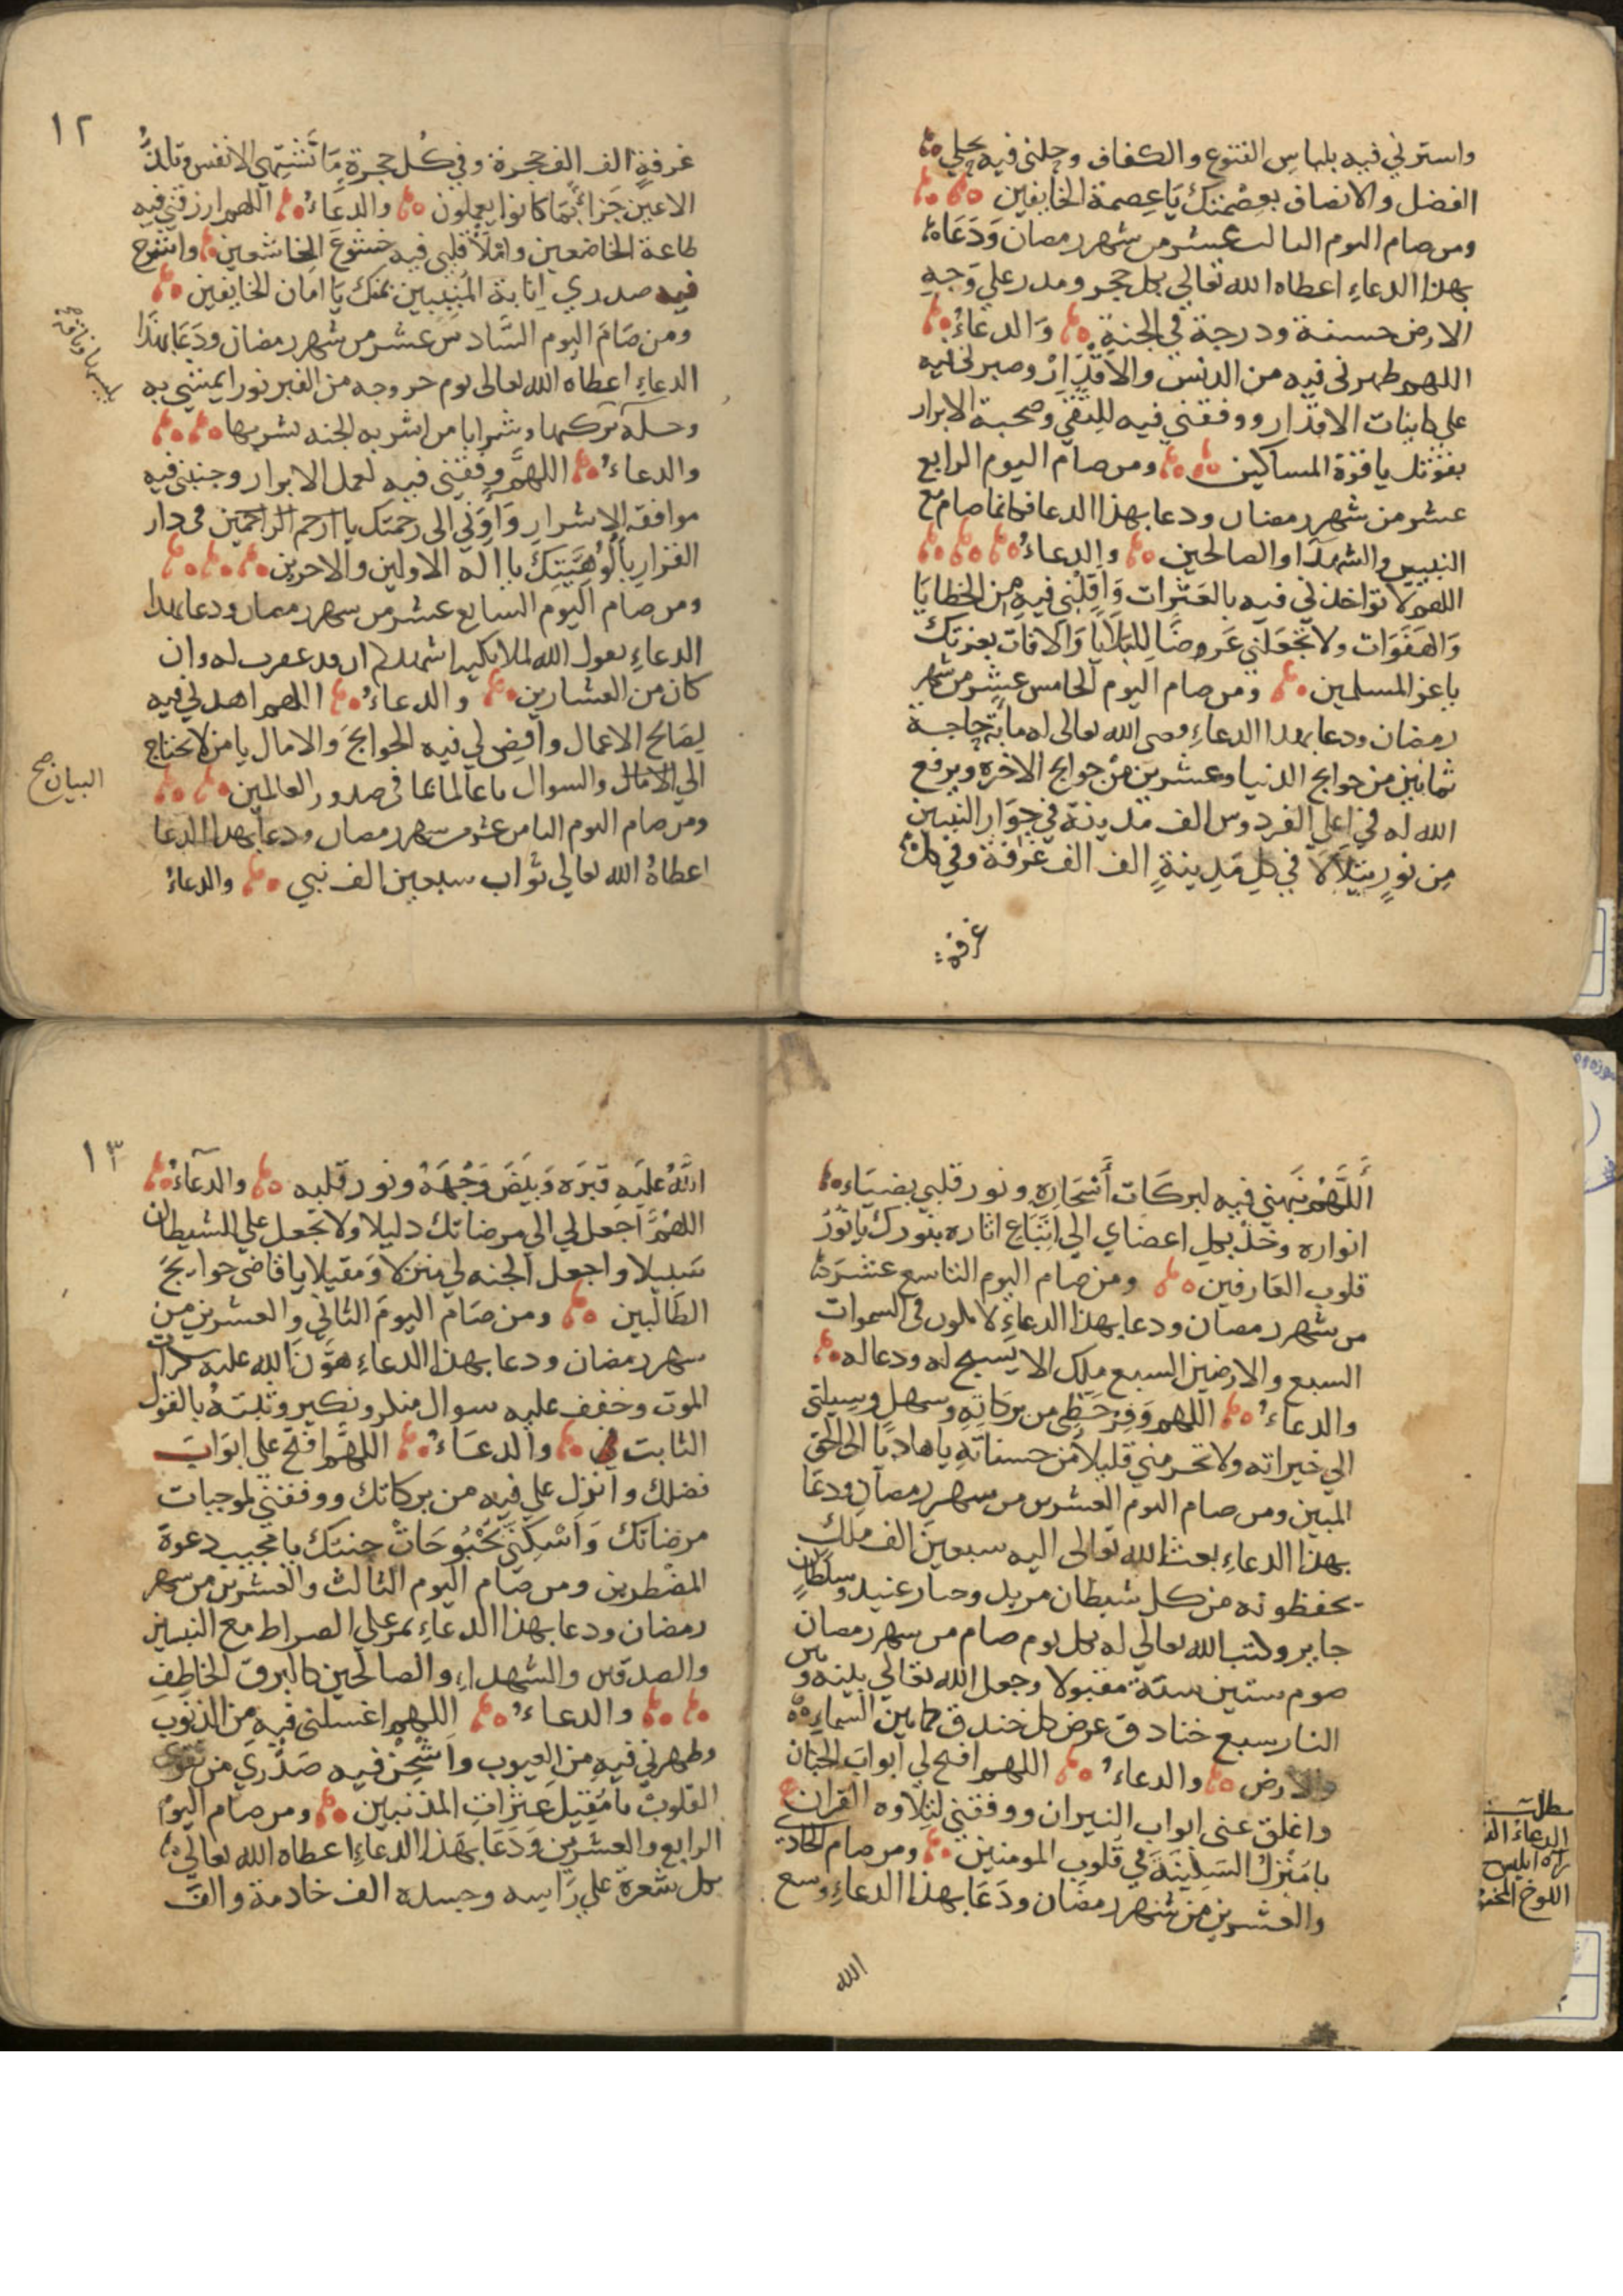 واسترني فيه بلباس القنوع والكفاف وحلني فيه بحلي
الفضل والانصاف بعصمتك يا عصمة الخايفين
ومن صام اليوم الثالث عشر من شهر رمضان ودعاه
بهذا الدعاءِ اعطاه الله تعالي بكل حجر ومدر علي وجه
الارض حسنة ودرجة في الجنة والدعاءُ
اللهم طهرني فيه من الدنس والاقذار وصبرني فيه
علي كاينات الاقدار ووفقني فيه للتقي وصحبة الابرار
بقوتك يا قوة المساكين ومن صام اليوم الرابع
عشر من شهر رمضان ودعا بهذا الدعا فكانما صام مع
النبيين والشهدآ والصالحين والدعاءُ
اللهم لا تواخذني فيه بالعثرات وَاَقِلْني فيه من الخطايا
والهفوات ولا تجعلني غرضا للبلايا والافات بعزتك
يا عز المسلمين ومن صام اليوم الخامس عشر من شهر
رمضان ودعا بهذا الدعاءِ قضي الله تعالى له ماية حاجة
ثمانين من حوايج الدنيا وعشرين من حوايج الاخرة ويرفع
الله له في اعلي الفردوس الف مدينة في جوار النبيين
مِن نورٍ يتلالا في كل مدينةٍ الف الف غرفة وفي كل
غرفة
١٢
غرفةٍ الف الف حجرة وفي كل حجرة ما تشتهي الانفس وتلذُّ
الاعين جزاءً بما كانوا يعملون والدعَاءُ اللهم ارزقني فيه
طاعة الخاضعين واملأ قلبي فيه خشوع الخاشعين واشرح
فيه صدري انابة المنيبين بمنك يا امان الخايفين
ومن صَامَ اليوم السَّادس عشر من شهر رمضان ودَعَا بهذا
الدعاءِ اعطاه الله تعالى يوم خروجه من القبر نورا يمشي به
وحلة يركبها وشرابا من اشربه الجنه يشربها
والدعاءُ اللهمَّ وفقني فيه لعمل الابرار وجنبني فيه
موافقة الاشرار وَآوِني الى رحمتك يا ارحم الراحمين في دار
القرار بأُلُوهِيَّتِكَ يا اله الاولين والاخرين
ومن صام اليوم السابع عشر من شهر رمضان ودعا بهذا
الدعاءِ يقول الله لملايكته اشهدكم اني قد غفرت له وان
كان من العشارين والدعاءُ اللهم اهدني فيه
لِصَالح الاعمال واقضِ لي فيه الحوايجَ والامال يا من لا يحتاج
الي الامال والسوال يا عالما بما في صدور العالمين
البيان صح
ومن صام اليوم الثامن عشر من شهر رمضان ودعا بهذا الدعا
اعطاهُ الله تعالي ثواب سبعين الف نبي والدعاءُ
أَللَّهُمَّ نَبِّهني فيه لبركات أسْحَارِهِ ونور قلبي بضيَاءِ
انواره وخذ بكل اعضاي الي اتباع اثاره بنورك يا نُورُ
قلوب العارفين ومن صام اليوم التاسع عشر
من شهر رمضان ودعا بهذا الدعاءِ لا يكون في السموات
السبع والارضين السبع ملك الا يسبح له ودعا له
والدعاءُ اللهم وَفِرْ حَظي من بركاته وسهل وسيلتي
الي خيراته ولا تحرمني قليلا من حسناته يا هاديًا الى الحق
المبين ومن صام اليوم العشرين من شهر رمضان ودعَا
بهذا الدعاءِ بعث الله تعالى اليه سبعين الف ملك
يحفظونه من كل شيطان مريد وجبار عنيد وسلطانٍ
جاير وكتب الله تعالي له بكل يوم صام من شهر رمضان
صوم ستين سنة مقبولا وجعل الله تعالي بينه وبين
النار سبع خنادق عرض كل خندق كما بين السماءِ
والارض والدعاءُ اللهم افتح لي ابواب الجنان
واغلق عني ابواب النيران ووفقني لتلاوه القران
يا مُنْزِلَ السَكِينةَ في قلوب المومنين ومن صام الحادي
والعشرين من شهر رمضان ودَعَا بهذا الدعاءِ وسع
الله
الدعاء
ابليس
اللوح
١٣
اللهُ عليه قبرَه وَبيضَ وَجْهَهُ ونور قلبه والدعآءُ
اللهمَّ اجعل لي الي مرضاتك دليلا ولا تجعل علي للشيطان
سَبيلا واجعل الجنه لي منزلا وَمَقيلا يا قاضي حوايجَ
الطالبين ومن صَام اليومَ الثاني والعشرين من
شهر رمضان ودعا بهذا الدعاءِ هَوَّنَ الله عليه سكرات
الموت وخفف عليه سوال منكر ونكير وثبتهُ بالقول
الثابت والدعاءُ اللهمَّ افتح علي ابوَابَ
فضلك وانزل علي فيه من بركاتك ووفقني لموجبات
مرضاتك وَاَسْكِنّي بُحْبُوحَاتْ جنتك يا مجيب دعوة
المضطرين ومن صام اليوم الثالث والعشرين من شهر
رمضان ودعا بهذا الدعاءِ يمر علي الصراط مع النبيين
والصدقين والشهداءِ والصالحين كالبرق الخاطِفِ
والدعاءُ اللهم اغسلني فيه من الذنوب
وطهرني فيه من العيوب وَاشْحِنْ فيه صَدري من تقوى
القلوبْ يا مُقيل عثرات المذنبين ومن صام اليوم
الرابع والعشرين وَدَعَا بهذا الدعاءِ اعطاه الله تعالي
بكل شعرة علي راسه وجسده الف خادمة والف